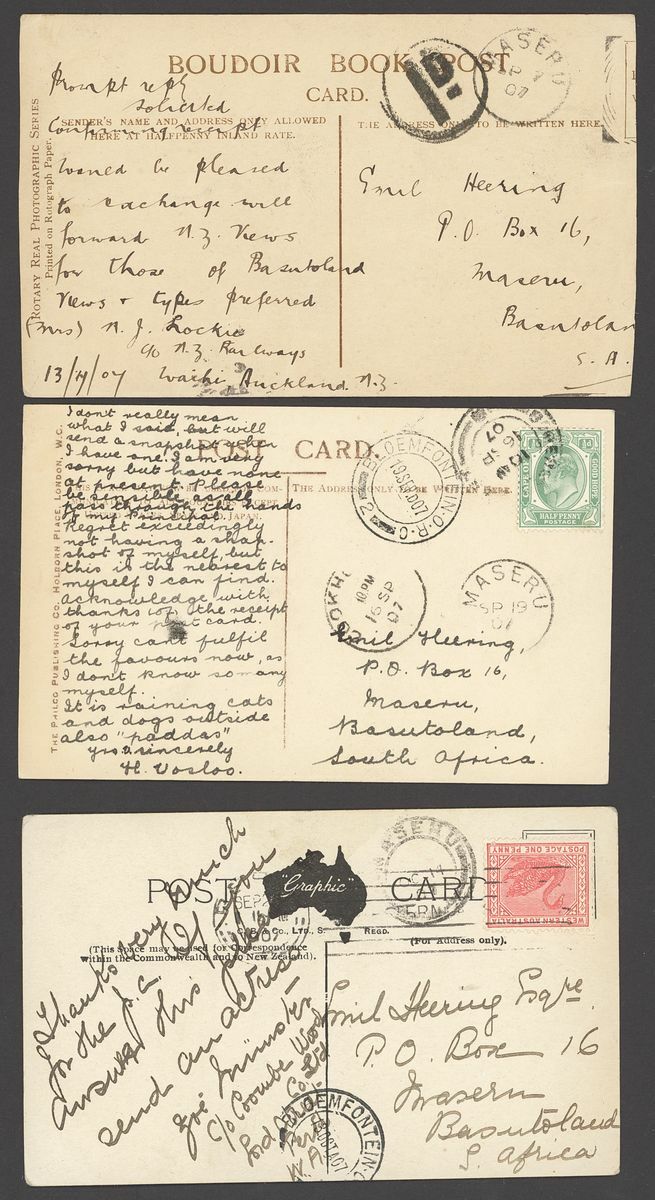 BOUDOIR BOOK POST
CARD.
ROTARY REAL PHOTOGRAPHIC SERIES
Printed on Rotograph Paper.
SENDER'S NAME AND ADDRESS ONLY ALLOWED
HERE AT HALFPENNY INLAND RATE.
THE ADDRESS ONLY TO BE WRITTEN HERE.
1D.
MASERU
SP
07
Prompt reply
solicited
Confirming receipt
Would be pleased
to exchange will
forward N.Z. Views
for those of Basutoland
Views & types preferred
(Mrs) N. J. Lockie
c/o N.Z. Railways
Waihi Auckland N.Z.
Emil Heering
P.O. Box 16,
Maseru,
Basutolan
S.A.
POST CARD.
THE PHILCO PUBLISHING CO. HOLBORN PLACE, LONDON, W.C.
THE ADDRESS ONLY TO BE WRITTEN HERE.
I dont really mean
what I said, but will
send a snapshot when
I have one. I am very
sorry but have none
at present. Please
be sensible as all
pass through the hands
of my Principal.
Regret exceedingly
not having a snap-
shot of myself, but
this is the nearest to
myself I can find.
Acknowledge with
thanks the receipt
of your post card.
Sorry cant fulfil
the favours now, as
I dont know so many
myself.
It is raining cats
and dogs outside
also "paddas"
yrs sincerely
H. Vosloo.
BLOEMFONTEIN·O·R·C
2
CAPE OF GOOD HOPE
½d
HALFPENNY
POSTAGE
10PM
16 SP
07
MASERU
SP 19
07
Emil Heering,
P.O. Box 16,
Maseru,
Basutoland,
South Africa.
POST CARD
"Graphic"
REGD.
(This Space may be used for Correspondence
within the Commonwealth and to New Zealand).
(For Address only).
MASERU
WESTERN AUSTRALIA
POSTAGE ONE PENNY
Thanks very much
for the p.c. If you
answer this please
send an actress
c/o Coombe Wood
W.A.
BLOEMFONTEIN
Emil Heering Esqre
P.O. Box 16
Maseru
Basutoland
S. Africa